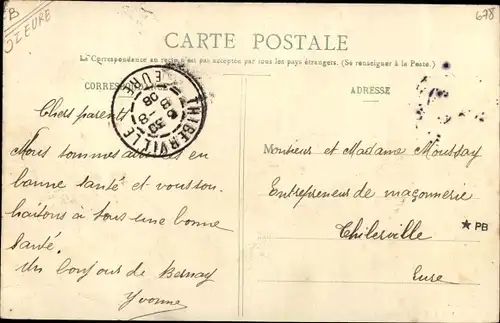 B
27 EURE
678
CARTE POSTALE
La Correspondance au recto n'est pas acceptée par tous les pays étrangers. (Se renseigner à la Poste.)
CORRESPONDANCE
ADRESSE
THIBERVILLE
EURE
30 -8
08
Chers parents
Nous sommes en
bonne santé et vous sou-
haitons à tous une bonne
santé.
Un bonjour de Bernay
Yvonne
Monsieur et Madame Moussay
Entrepreneur de maçonnerie
Thiberville
Eure
★ PB